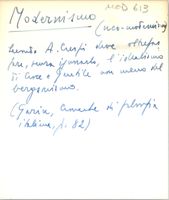 MOD 613
Modernismo
(neo-modernismo)
Secondo A. Crespi deve oltrepas
sare, senza ignorarlo, l'idealismo
di Croce e Gentile non meno del
bergsonismo.
(Garin, Cronache di filosofia
italiana, p. 82)